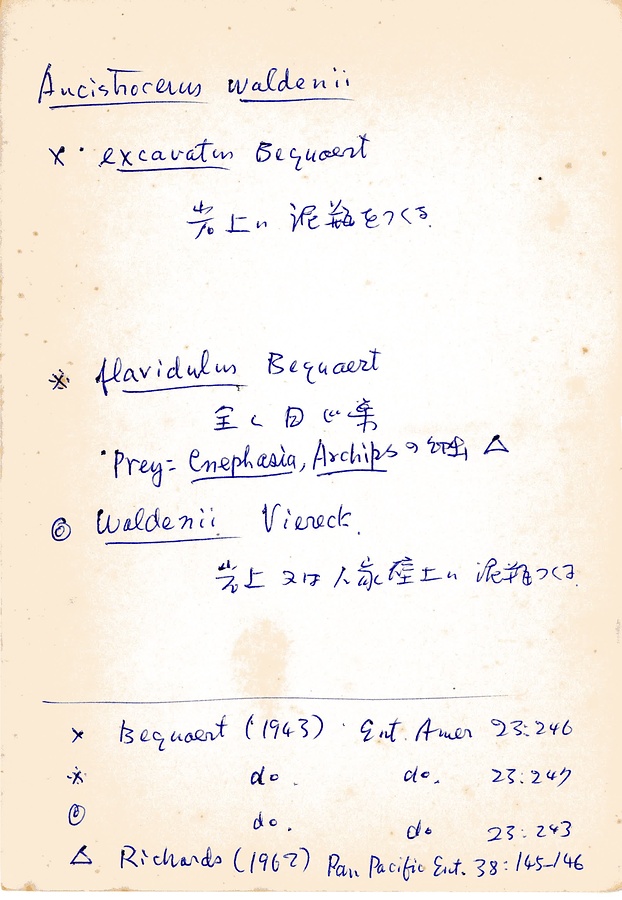 Ancistrocerus waldenii
× · excavatus Bequaert
岩上に 泥瓶をつくる.
※ flavidulus Bequaert
全く同じ巣
· Prey = Cnephasia, Archips の幼虫 △
◎ Waldenii Viereck.
岩上 又は 人家壁上に 泥瓶つくる.
× Bequaert (1943) · Ent. Amer 23:246
※ do. do. 23:247
◎ do. do 23:243
△ Richards (1962) Pan Pacific Ent. 38:145-146